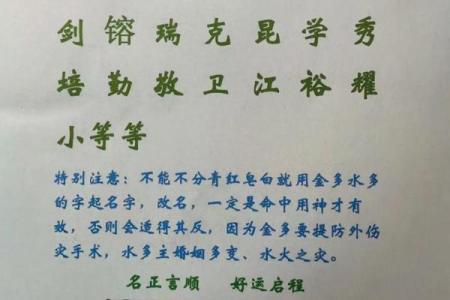 剑 镕 瑞 克 昆 学 秀
培 勤 敬 卫 江 裕 耀
小等等
特别注意：不能不分青红皂白就用金多水多
的字起名字，改名，一定是命中用神才有
效，否则会适得其反，因为金多要提防外伤
灾手术，水多主婚姻多变、水火之灾。
名正言顺 好运启程